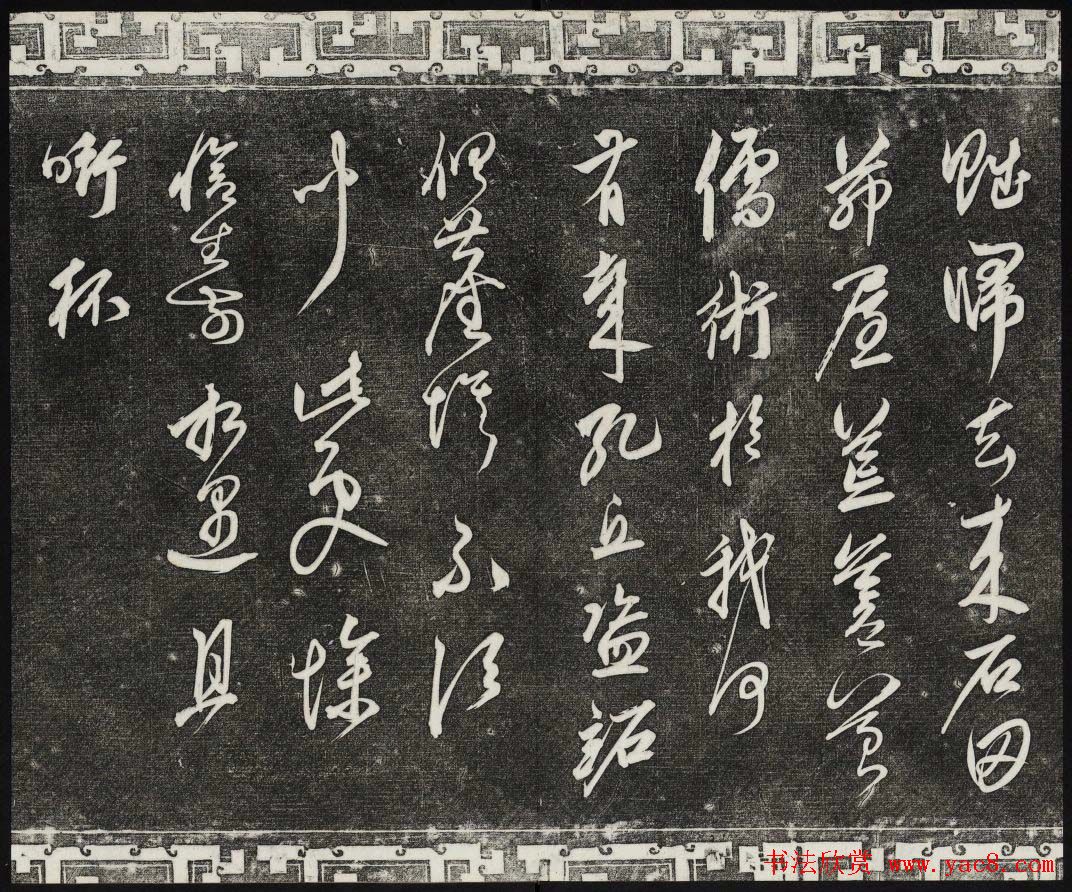 賦歸去来石田
茅屋荒蒼苔
儒術於我何
有哉孔丘盗跖
俱塵埃不須
聞此意惨
愴生前相遇且
銜杯
书法欣赏 www.yac8.com